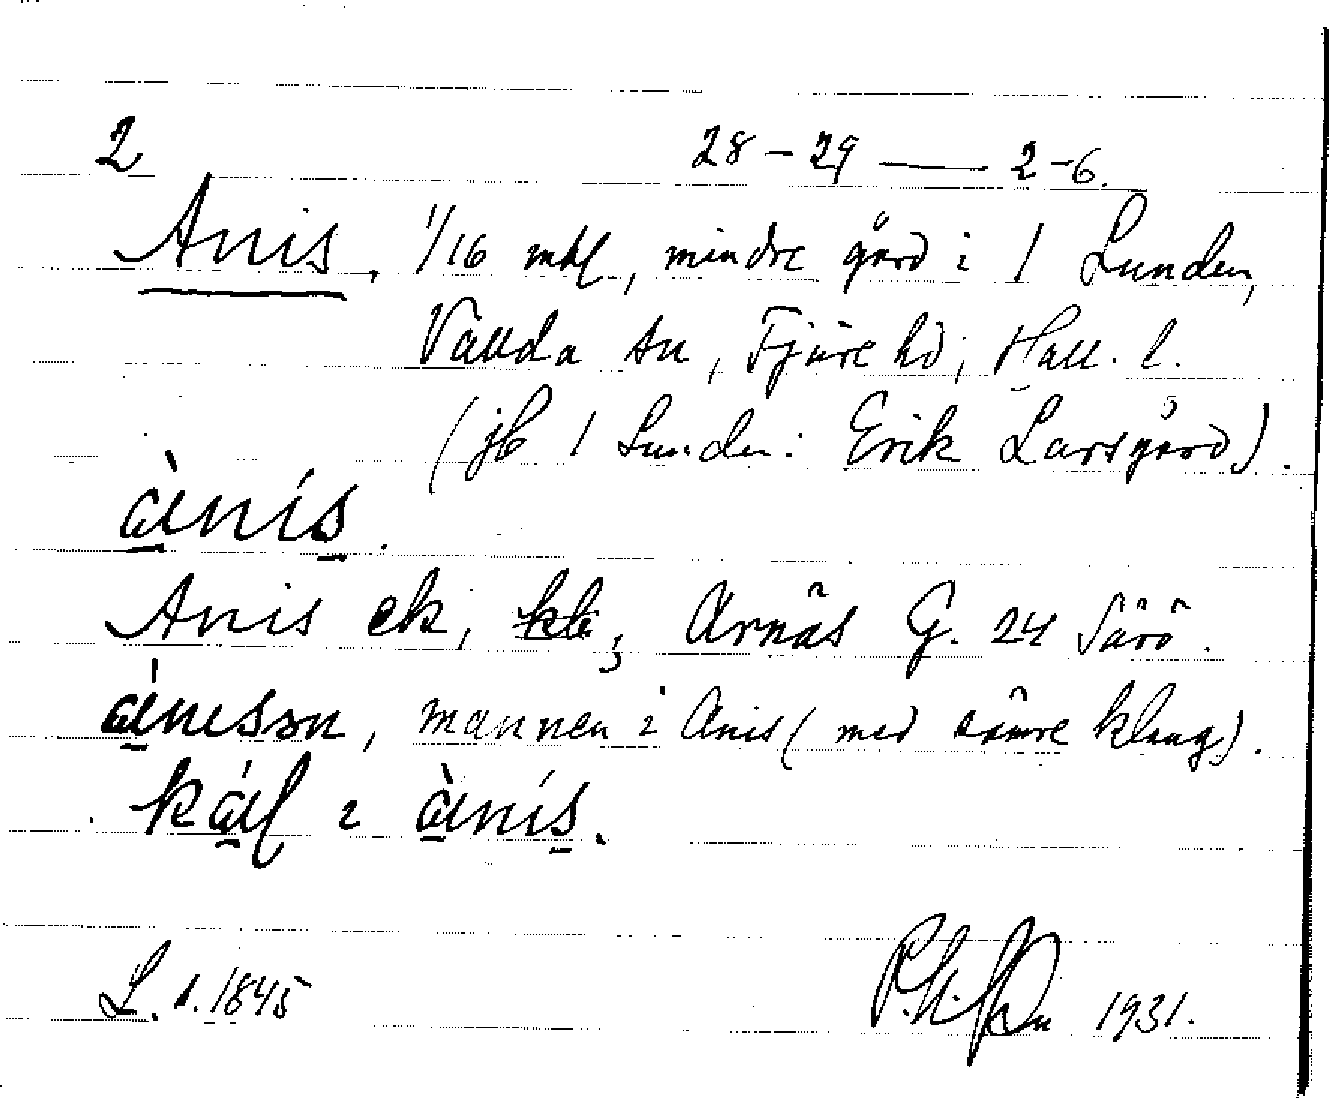 2 28-29 — 2-6.
Anis, 1/16 mtl, mindre gård i 1 Lunden,
Vallda sn, Fjäre hd, Hall. l.
(jb 1 Lunden: Erik Larsgård).
ànís.
Anis ek, Arnäs G. 24 Särö.
mannen i Anis (med klang).
i ànís.
L. s. 1845 1931.